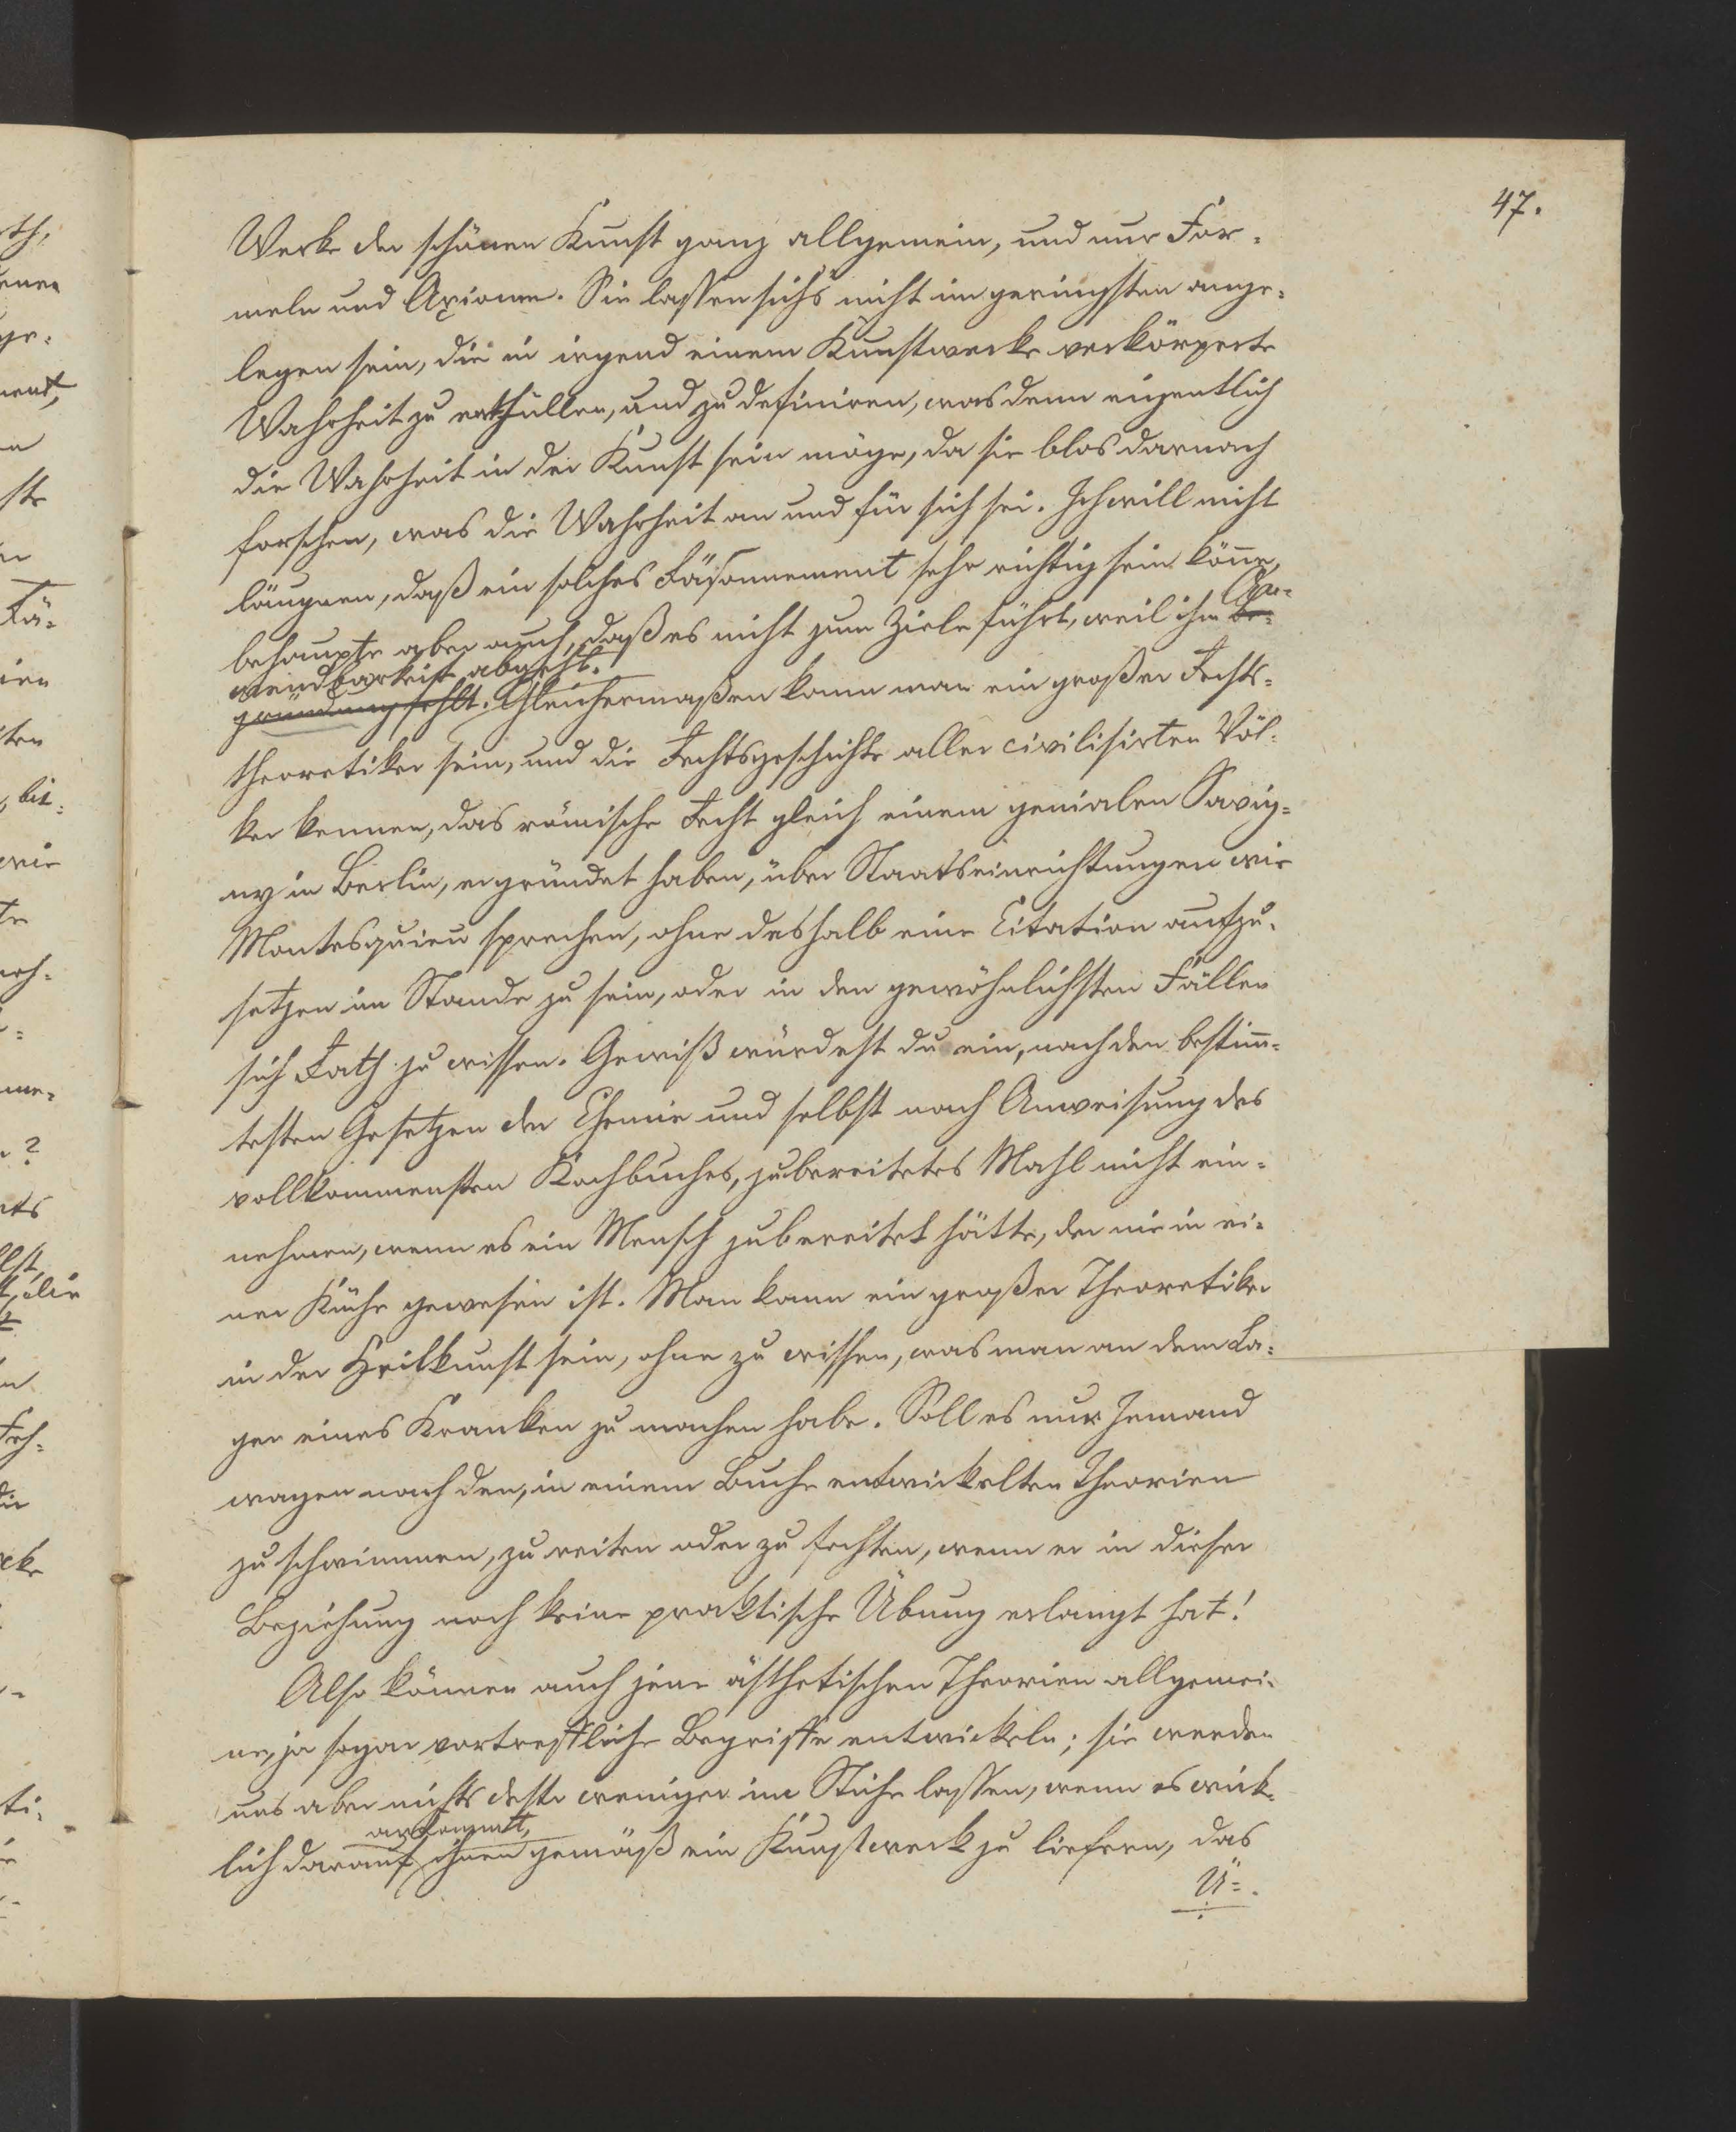 47.
Werke der schönen Kunst ganz allgemein, und nur For-
meln und Axiome. Sie lassen sich's nicht im geringsten ange-
legen sein, die in irgend einem Kunstwerke verkörperte
Wahrheit zu enthüllen, und zu definiren, was denn eigentlich
die Wahrheit in der Kunst sein möge, da sie blos darnach
forschen, was die Wahrheit an und für sich sei. Ich will nicht
läugnen, daß ein solches Räsonnement sehr richtig sein könne,
An-
behaupte aber auch, daß es nicht zum Ziele führt, weil ihm Be-
wendbarkeit abgeht.
gründung fehlt. Gleichermaßen kann man ein großer Rechts-
theoretiker sein, und die Rechtsgeschichte aller civilisirten Völ-
ker kennen, das römische Recht gleich einem genialen Savig-
ny in Berlin, ergründet haben, über Staatseinrichtungen wie
Montesquieu sprechen, ohne deshalb eine Citation aufzu-
setzen im Stande zu sein, oder in den gewöhnlichsten Fällen
sich Rath zu wissen. Gewiß würdest du ein, nach den bestimm-
testen Gesetzen der Chemie und selbst nach Anweisung des
vollkommensten Kochbuches, zubereitetes Mahl nicht ein-
nehmen, wenn es ein Mensch zubereitet hätte, der nie in ei-
ner Küche gewesen ist. Man kann ein großer Theoretiker
in der Heilkunst sein, ohne zu wissen, was man an dem La-
ger eines Kranken zu machen habe. Soll es nur Jemand
wagen nach den, in einem Buche entwickelten Theorien
zu schwimmen, zu reiten oder zu fechten, wenn er in dieser
Beziehung noch keine praktische Übung erlangt hat!
Also können auch jene ästhetischen Theorien allgemei-
ne, ja sogar vortreffliche Begriffe entwickeln; sie werden
uns aber nichts desto weniger im Stiche lassen, wenn es wirk-
ankommt,
lich darauf ihnen gemäß ein Kunstwerk zu liefern, das
Ü-